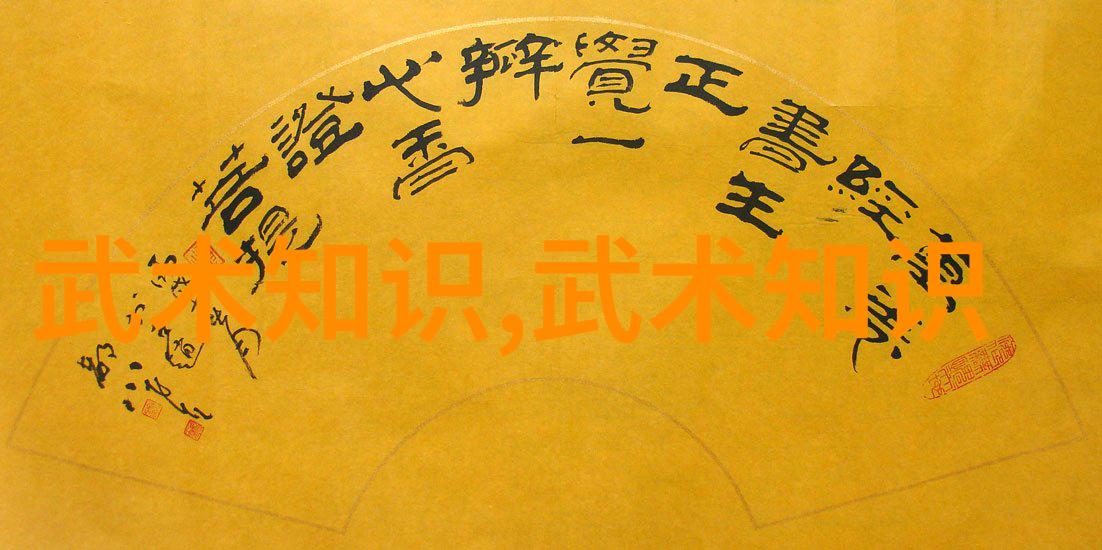 真義
經
書生
正
覺一
瓣
心香
證
菩提
武术知识,武术知识